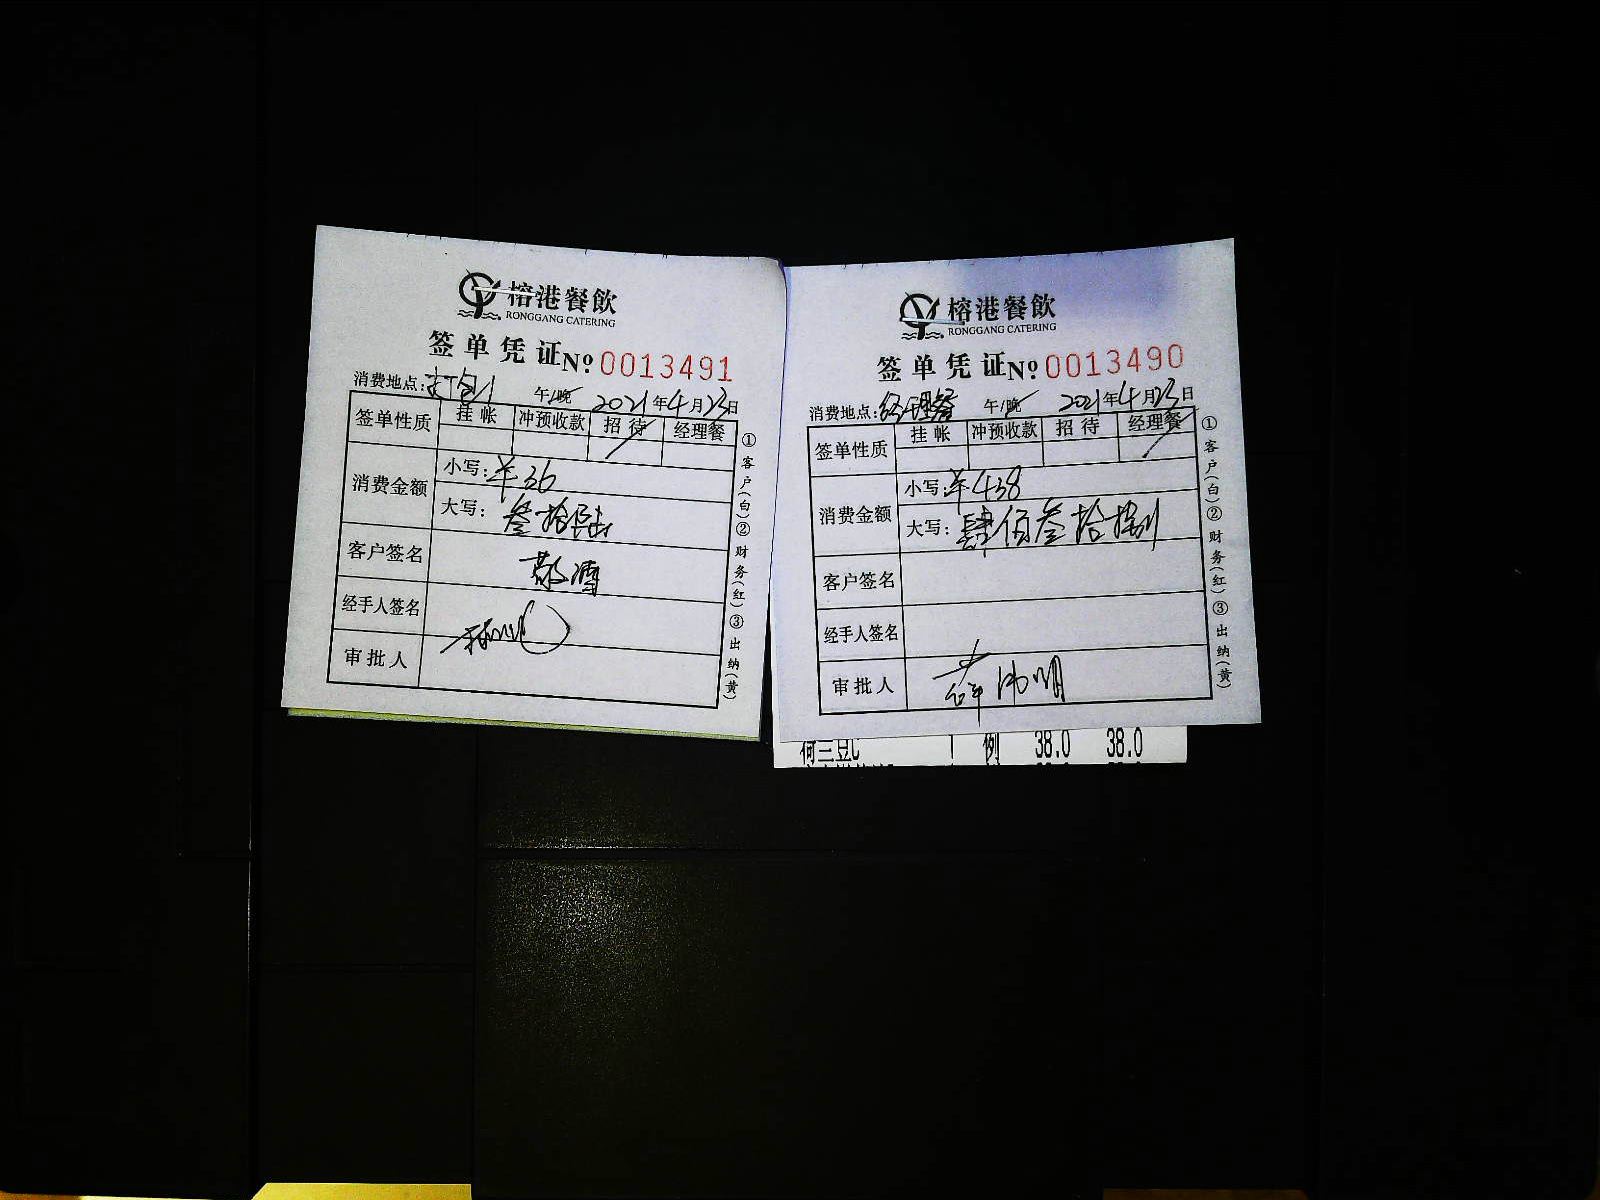 榕港餐飲
RONGGANG CATERING
签单凭证 № 0013491
消费地点：打包1 午/晚 2021年4月23日
签单性质 挂帐 冲预收款 招待 经理餐
消费金额 小写：￥36
大写：叁拾陆
客户签名 敬酒
经手人签名
审批人
①客户(白)②财务(红)③出纳(黄)
榕港餐飲
RONGGANG CATERING
签单凭证 № 0013490
消费地点：经理餐 午/晚 2021年4月23日
签单性质 挂帐 冲预收款 招待 经理餐
消费金额 小写：￥438
大写：肆佰叁拾捌
客户签名
经手人签名
审批人 薛沛明
①客户(白)②财务(红)③出纳(黄)
1 例 38.0 38.0